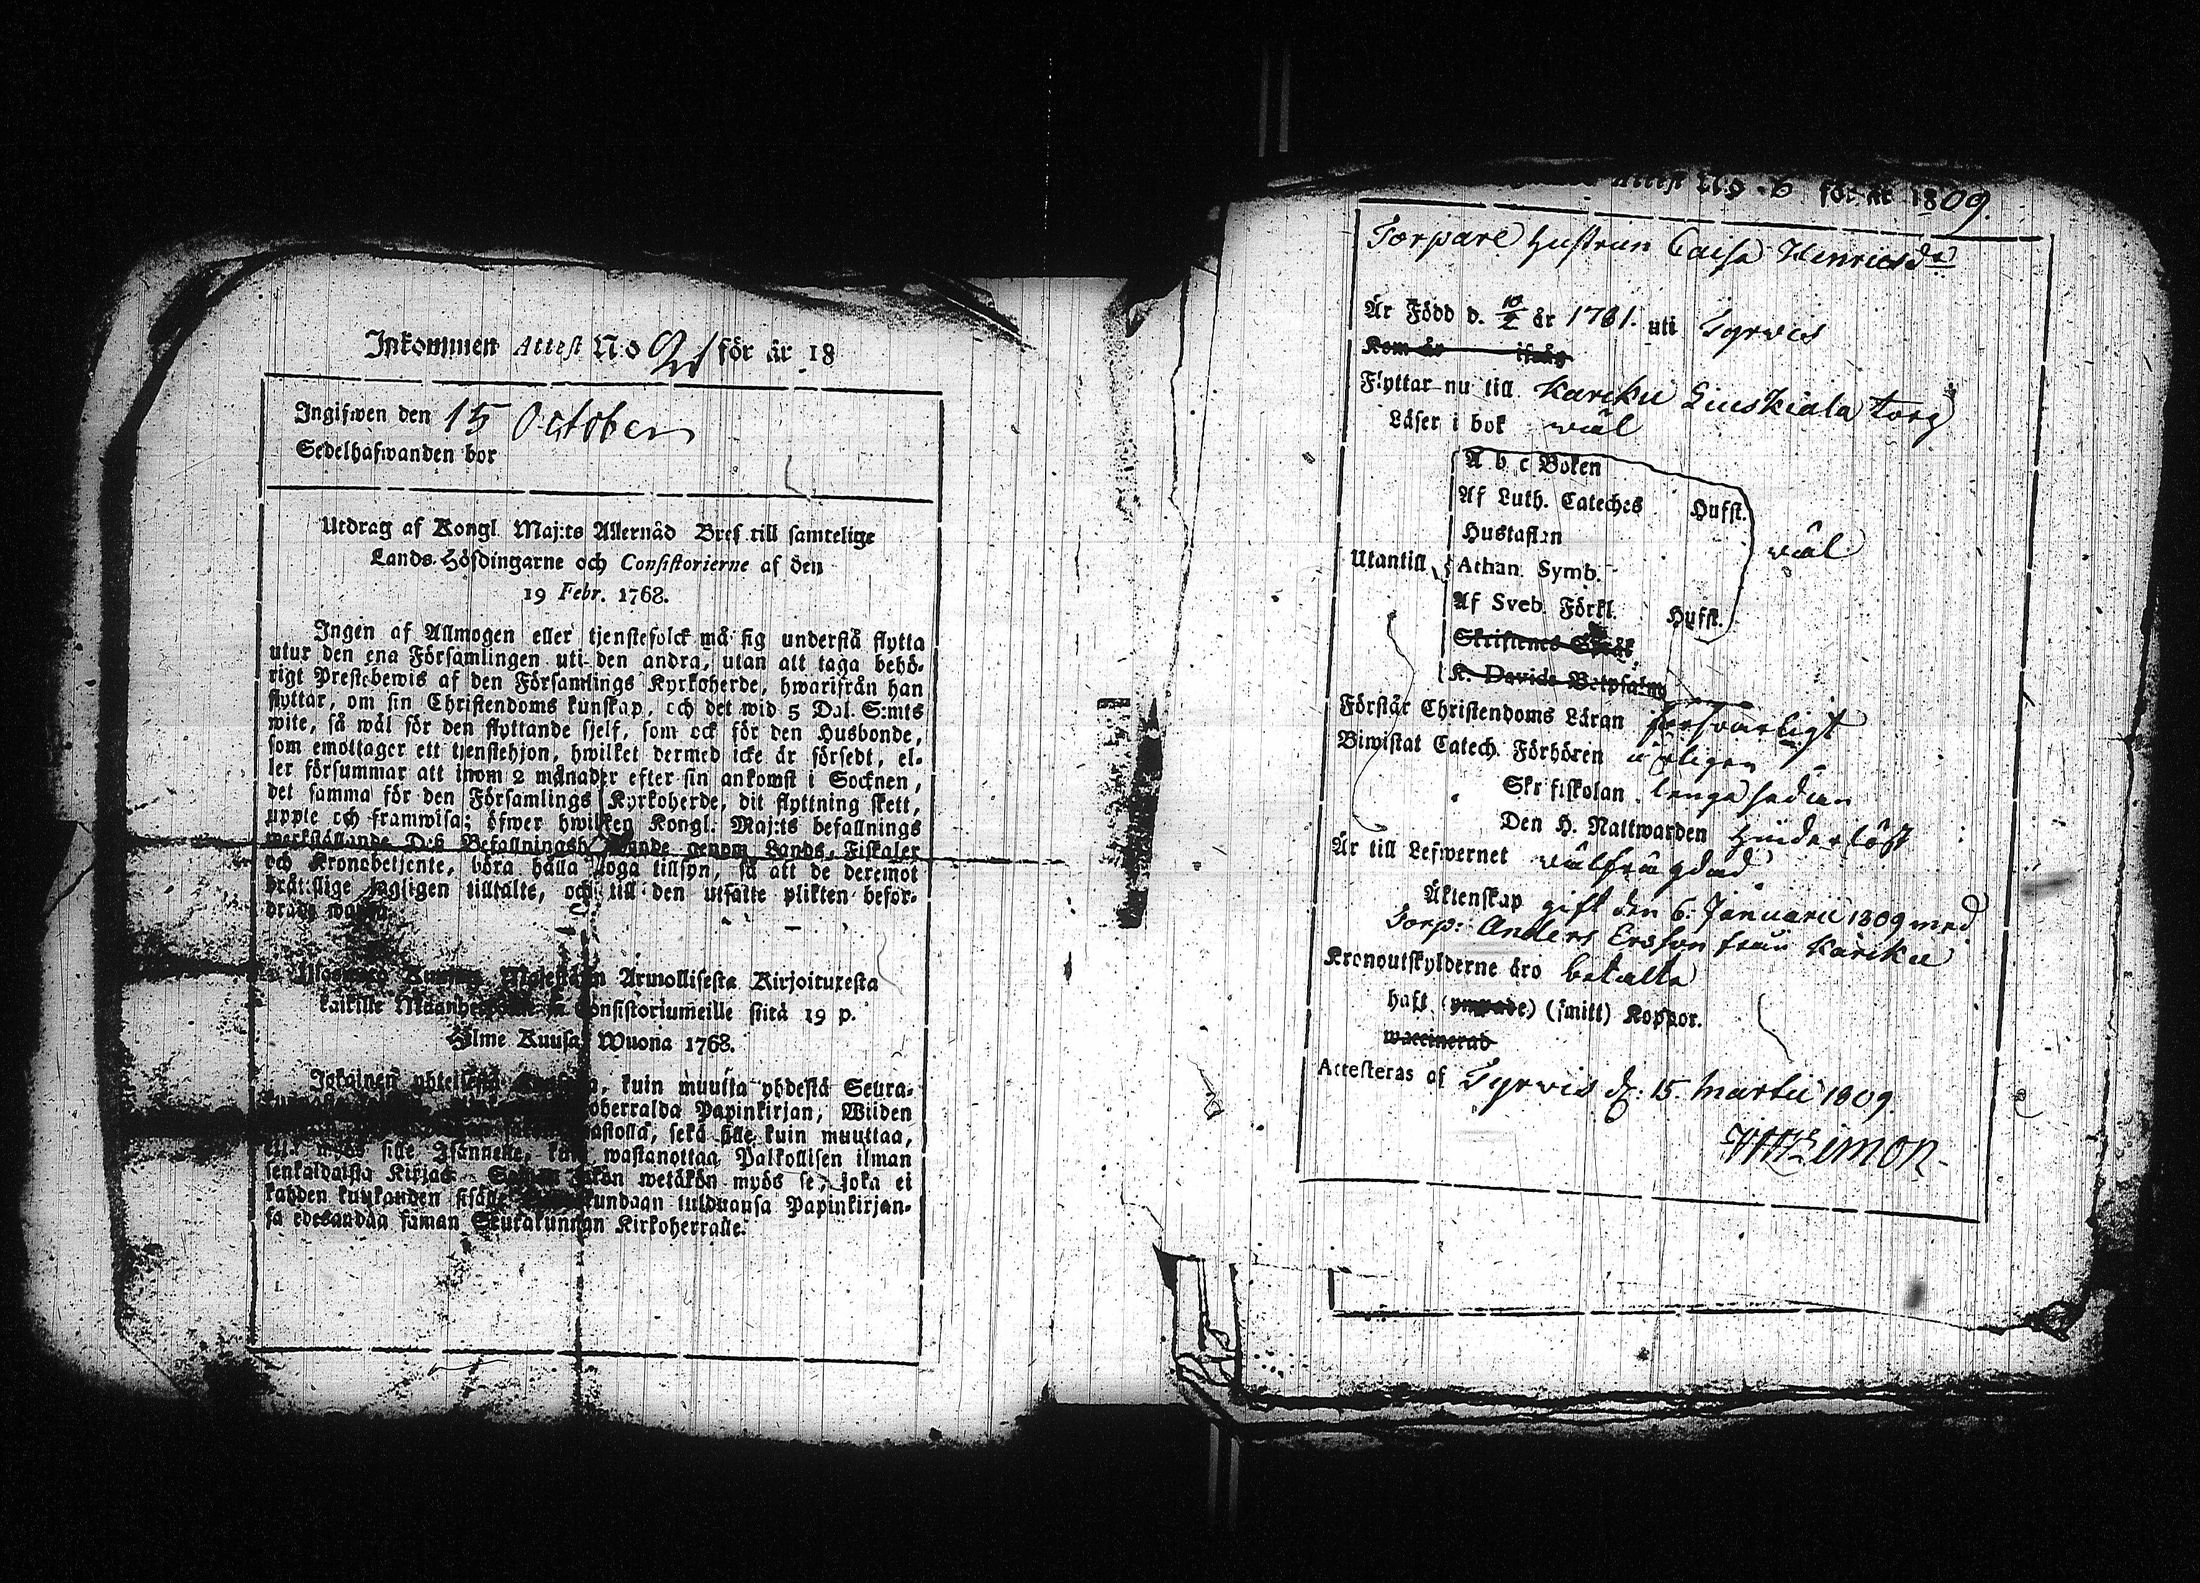 Inkommen Attest No 21 för år 18
Ingifwen den 15 October
Sedelhafwanden bor
Utdrag af Kongl. Maj:ts Allernåd Bref till samtelige
Lands-Höfdingarne och Consistorierne af den
19 Febr. 1768.
Ingen af Allmogen eller tjenstefolck må sig understå flytta
utur den ena Församlingen uti den andra, utan att taga behö-
rigt Prestebewis af den Församlings Kyrkoherde, hwarifrån han
flyttar, om sin Christendoms kunskap, och det wid 5 Dal. S:mts
wite, så wäl för den flyttande sjelf, som ock för den Husbonde,
som emottager ett tjenstehjon, hwilket dermed icke är försedt, el-
ler försummar att inom 2 månader efter sin ankomst i Socknen,
det samma för den Församlings Kyrkoherde, dit flyttning skett,
upple och framwisa; öfwer hwilken Kongl. Maj:ts befallnings
werkställande D:s Befallningsh. genom Lands-Fiskaler
och Kronobetjente, böra hålla noga tillsyn, så att de deremot
bråttslige lagligen tilltalte, och till den utsatte plikten befor-
drade warda.
Armollisesta Kirjoituxesta
kaikille Consistoriumeille siitä 19 p.
Helme Kuusa Wuona 1768.
Jokainen yhteisestä kuin muutta yhdestä Seura-
koherralda Papinkirjan, Wiiden
sakolla, sekä sille kuin muuttaa,
että myös sille Isännelle, kuin wastanottaa Palkollisen ilman
senkaldaista Kirjaa. Saman sakon wetäkön myös se, joka ei
kahden kuukauden sisälle kundaan tulduansa Papinkirjan-
sa edesandaa saman Seurakunnan Kirkoherralle.
Attest No 6 för år 1809.
Torpare Hustrun Caisa Henricsdr
Är Född d. 10/2 år 1761. uti Tyrvis
Kom år ifrån
Flyttar nu till Karcku Liuskiala torp
Läser i bok wäl
A b c Boken
Af Luth. Cateches Hufst.
Hustaflan
Utantill Athan. Symb. wäl
Af Sveb. Förkl. Hufst.
Skriftenes Språk
K. Davids Botpsalmer
Förstår Christendoms Läran försvarligt
Biwistat Catech. Förhören årligen
Skriftskolan länge sedan
Den H. Nattwarden Hinderlöst
Är till Lefwernet wälfrägdad
Äktenskap gift den 6. Januarii 1809 med
Torp: Anders Ersson från Karcku
Kronoutskylderne äro betalta
haft (ympade) (smitt) Koppor.
waccinerad
Attesteras af Tyrvis d: 15. Martii 1809.
Limon